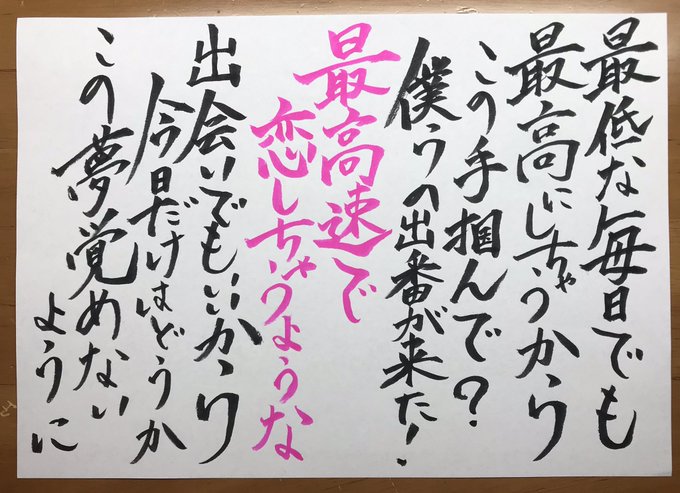 最低な毎日でも
最高にしちゃうから
この手掴んで？
僕らの出番が来た！
最高速で
恋しちゃうような
出会いでもいいから
今日だけはどうか
この夢覚めない
ように